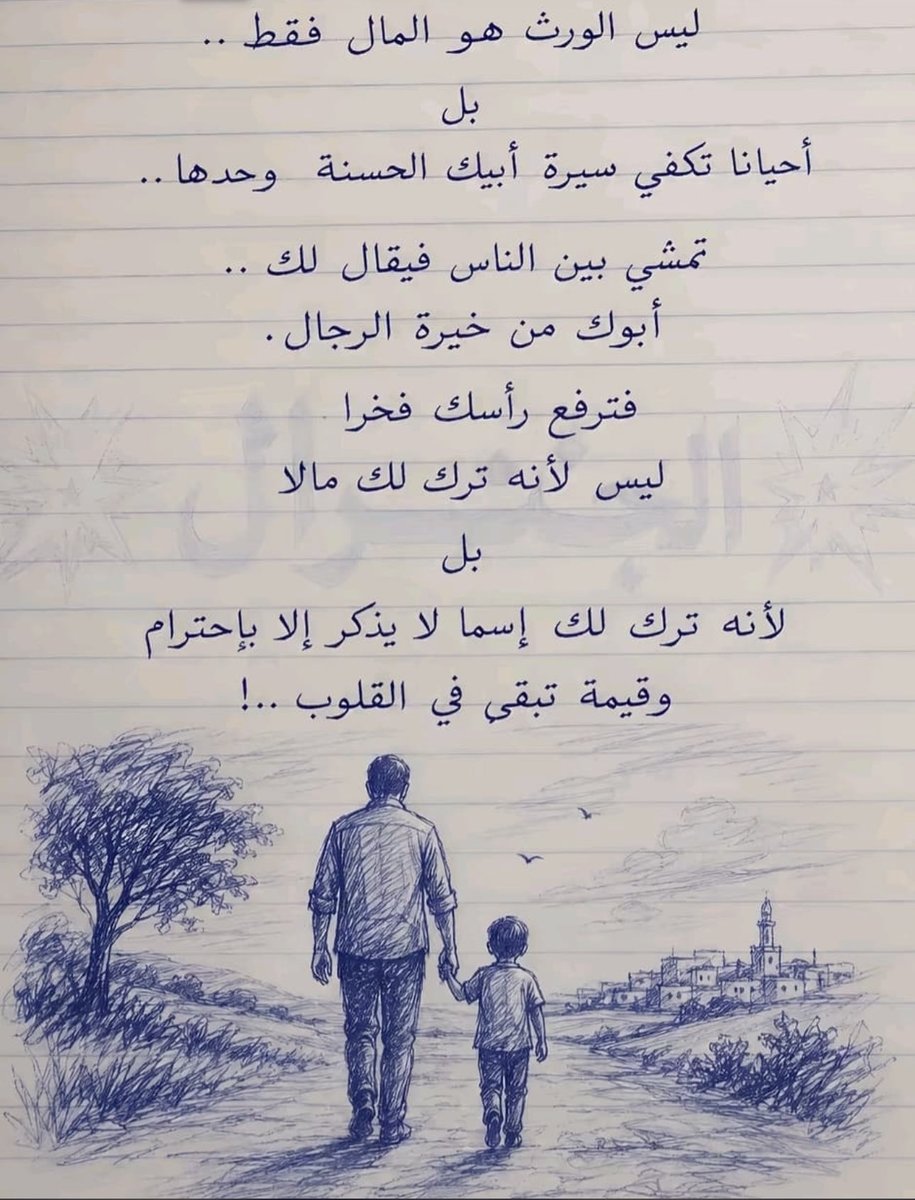 ليس الورث هو المال فقط ..
بل
أحيانا تكفي سيرة أبيك الحسنة وحدها ..
تمشي بين الناس فيقال لك ..
أبوك من خيرة الرجال .
فترفع رأسك فخرا
ليس لأنه ترك لك مالا
بل
لأنه ترك لك إسما لا يذكر إلا بإحترام
وقيمة تبقى في القلوب ..!
الجنرال